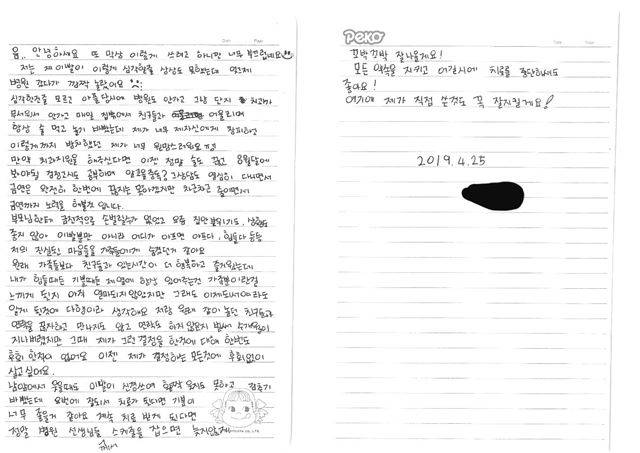 음,, 안녕하세요 또 막상 이렇게 쓰려고 하니깐 너무 부끄럽네요
저는 제 이빨이 이렇게 심각한줄 상상도 못했는데 언제
병원 갔다가 깜짝 놀랐어요
심각한것을 모르고 아플당시에 병원도 안가고 그냥 단지 치과가
무서워서 안가고 매일 집밖에서 친구들과 어울리며
항상 술 먹고 놀기 바빴는데 제가 너무 제자신에게 창피하고
이렇게까지 방치했던 제가 너무 원망스러워요
만약 치과지원을 해주신다면 이젠 정말 술도 끊고 8월달에
보아야될 검정고시도 공부하며 알코올중독? 그상담도 열심히 다니면서
금연은 완전히 한번에 끊지는 못하겠지만 차근차근 줄이면서
금연까지 노력을 해볼것 입니다.
부모님한테 금전적으로 손벌릴수가 없었고 요즘 집안분위기도, 상황도
좋지 않아 이빨뿐만 아니라 어디가 아프면 아프다, 힘들다 등등
저의 진심도 마음들을 가족들에게 숨겼던거 같아요
원래 가족들보다 친구들과 있는시간이 더 행복하고 즐거웠는데
내가 힘들때든 기쁠때든 제 옆에 항상 있어주는건 가족뿐이란걸
느끼게 된지 아직 얼마되지않았지만 그래도 이제도서여라도
알게 된것에 다행이라 생각해요 저랑 원래 같이 놀던 친구들과
연락을 끊자하고 만나지도 않고 연락도 하지 않은지 벌써 수개월이
지나버렸지만 그때 제가 그런결정을 한것에 대해 한번도
후회 한적이 없어요 이젠 제가 결정하는 모든것에 후회없이
살고싶어요.
남앞에서 웃을때도 이빨이 신경쓰여 활짝 웃지도 못하고 감추기
바빴는데 요번에 잘되서 치료가 된다면 기분이
너무 좋을거 같아요 계속 치료 받게 된다면
정말 병원 선생님들 스케줄을 잡으면 늦지않게
가서
PeKO
꼬박꼬박 잘나올게요!
모든 약속을 지키고 어길시에 치료를 중단하셔도
좋아요!
여기에 제가 직접 쓴것도 꼭 잘지킬게요!
2019.4.25